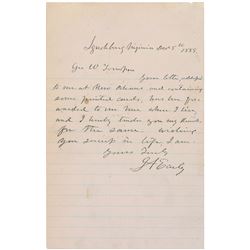 Lynchburg Virginia Dec 5th 1885.
Geo W Thompson
Your letter addressed
to me at New Orleans, and containing
some printed cards, has been for-
warded to me here where I live
and I hereby tender you my thanks
for the same. wishing
you success in life, I am
Yours Truly
J A Early